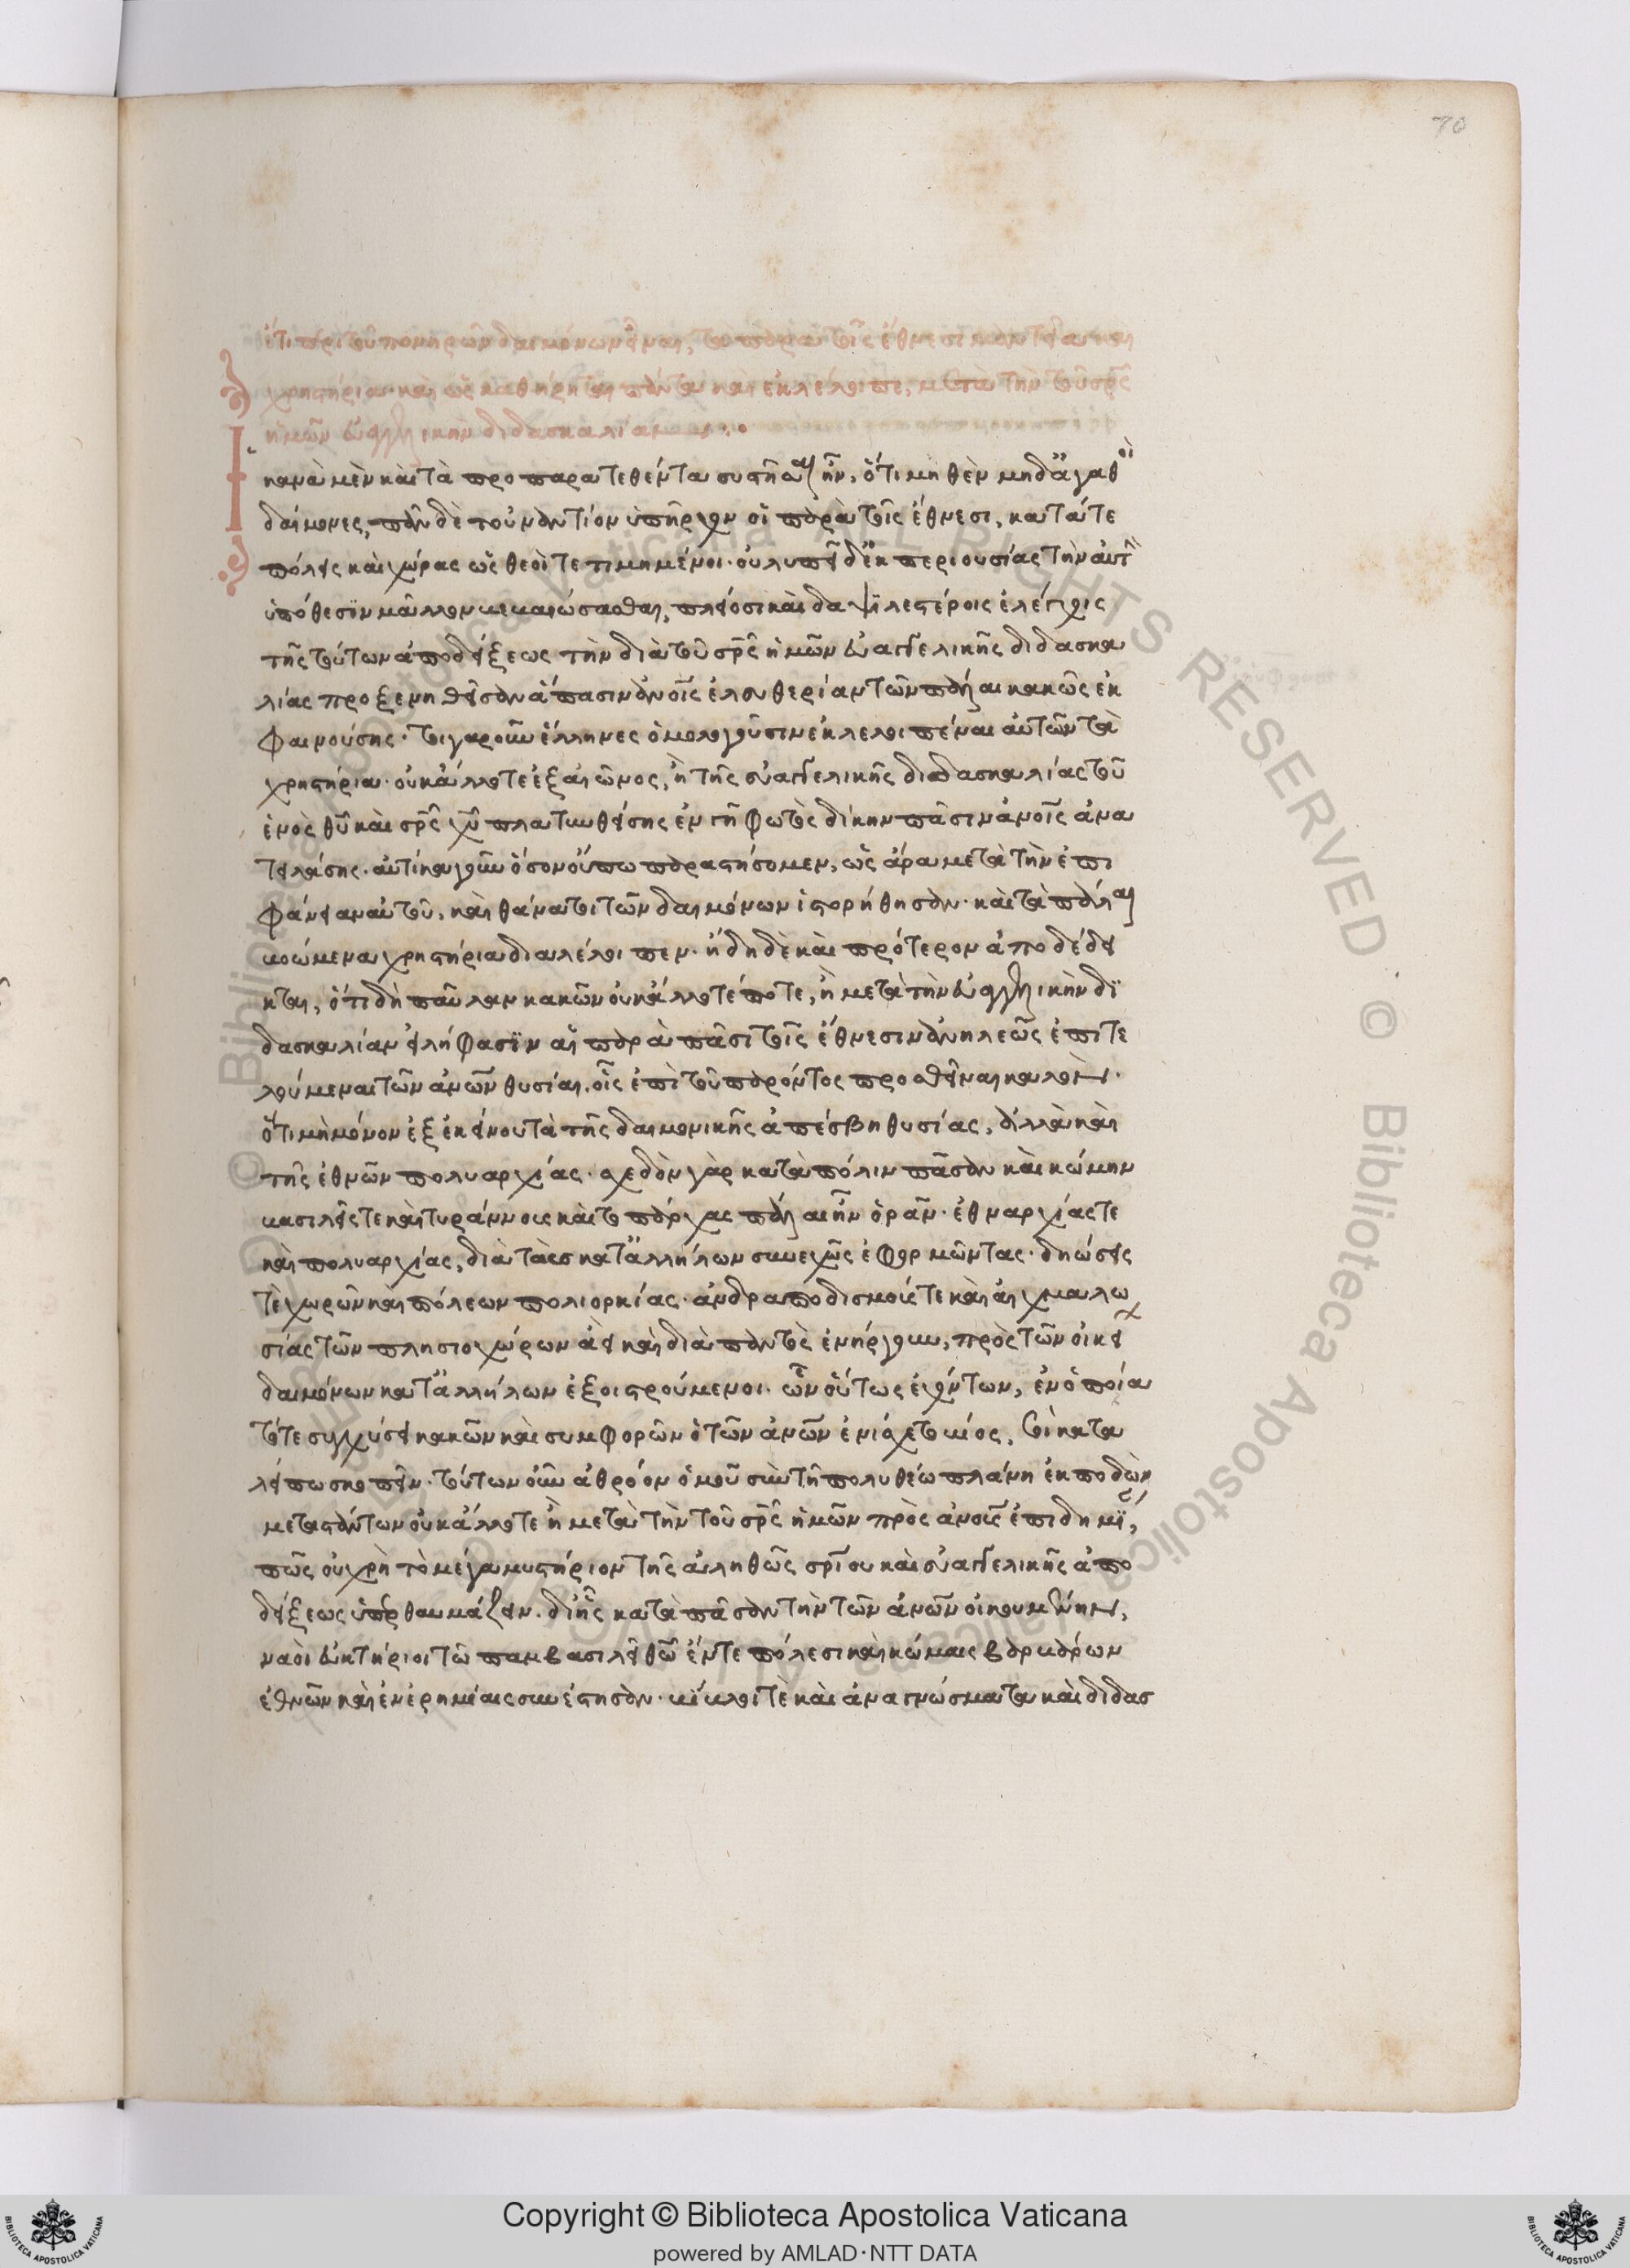 70
ἔτι περὶ τοῦ πονηρῶν δαιμόνων εἶναι, τὰ παρὰ τοῖς ἔθνεσι μαντεῖα καὶ
χρηστήρια· καὶ ὡς καθῄρηται πάντα καὶ ἐκλέλοιπε, μετὰ τὴν τοῦ σρς
ἡμῶν εὐαγγελικὴν διδασκαλίαν
Ἱκανὰ μὲν καὶ τὰ προπαρατεθέντα συστῆσαι ἦν, ὅτι μὴ θεοὶ μηδ' ἀγαθοὶ
δαίμονες, πᾶν δὲ τοὐναντίον ὑπῆρχον οἱ παρὰ τοῖς ἔθνεσι, κατά τε
πόλεις καὶ χώρας ὡς θεοί τετιμημένοι· οὐ λυπεῖ δ' ἐκ περιουσίας τὴν αὐτὴν
ὑπόθεσιν μᾶλλον κεκαιώσασθαι, πλείοσι καὶ δαψιλεστέροις ἐλέγχοις
τῆς τούτων ἀποδείξεως τὴν διὰ τοῦ σρς ἡμῶν εὐαγγελικῆς διδασκα
λίας προξενηθεῖσαν ἅπασιν ανοις ἐλευθερίαν τῶν πάλαι κακῶς ἐκ
φαινούσης· οἵ γαροῦν ἕλληνες ὁμολογοῦσιν ἐκλελοιπέναι αὐτῶν τὰ
χρηστήρια· οὐκ ἄλλοτε ἐξ αἰῶνος, ἢ τῆς εὐαγγελικῆς διδασκαλίας τοῦ
ἑνὸς θυ καὶ σρς χυ πλατυνθείσης ἐν γῇ φωτὸς δίκην πᾶσιν ανοις ἀνα
τειλάσης· αὐτίκα γοῦν ὅσον οὔπω παραστήσομεν, ὡς ἄρα μετὰ τὴν ἐπι
φάνειαν αὐτοῦ, καὶ θάνατοι τῶν δαιμόνων ἱστορήθησαν· καὶ τὰ πάλαι
βοώμενα χρηστήρια διαλέλοιπεν· ἤδη δὲ καὶ πρότερον ἀποδέδει
κται, ὅτι δὴ παῦλαν κακῶν οὐκ ἄλλοτέ ποτε, ἢ μετὰ τὴν εὐαγγελικὴν δι
δασκαλίαν εἰλήφασιν αἱ παρὰ πᾶσι τοῖς ἔθνεσιν ἀνηλεῶς ἐπιτε
λούμεναι τῶν ανων θυσίαι· οἷς ἐπὶ τοῦ παρόντος προσθεῖναι καλὸν·
ὅτι μὴ μόνον ἐξ ἐκείνου τὰ τῆς δαιμονικῆς ἀπέσβη θυσίας, ἀλλὰ καὶ
τῆς ἐθνῶν πολυαρχίας· σχεδὸν γὰρ κατὰ πόλιν πᾶσαν καὶ κώμην
βασιλεῖς τε καὶ τυράννους καὶ τοπάρχας πάλαι ἦν ὁρᾶν· ἐθναρχίας τε
καὶ πολυαρχίας, διὰ τὰς κατ' ἀλλήλων συνεχῶς ἐφορμῶντας· δηώσεις
τὲ χωρῶν καὶ πόλεων πολιορκίας· ἀνδραποδισμούς τε καὶ αἰχμαλω
σίας τῶν πλησιοχώρων ἀεὶ καὶ διὰ παντὸς ἐνήργουν, πρὸς τῶν οἰκείων
δαιμόνων κατ' ἀλλήλων ἐξοιστρούμενοι· ὧν οὕτως ἐχόντων, ἐν ὁποία
τότε συγχύσει κακῶν καὶ συμφορῶν ὁ τῶν ανων ἐνίσχετο βίος, σοὶ κατα
λείπω σκοπεῖν· τούτων οὖν ἀθρόον ὁμοῦ σὺν τῇ πολυθέω πλάνη ἐκποδὼν
μεταστάντων οὐκ ἄλλοτε ἢ μετὰ τὴν τοῦ σρς ἡμῶν πρὸς ανους ἐπιδημί,
πῶς οὐ χρὴ τὸ μέγα μυστήριον τῆς ἀληθῶς σριου καὶ εὐαγγελικῆς ἀπο
δείξεως ὑπερθαυμάζειν· δι' ἧς κατὰ πᾶσαν τὴν τῶν ανων οἰκουμένην,
ναοὶ εὐκτήριοι τῶ παμβασιλεῖ θω ἔν τε πόλεσι καὶ κώμαις βαρβάρων
ἐθνῶν καὶ ἐν ἐρημίαις συνέστησαν· βίβλοι τὲ καὶ ἀναγνώσματα καὶ διδασ
Copyright © Biblioteca Apostolica Vaticana
powered by AMLAD·NTT DATA